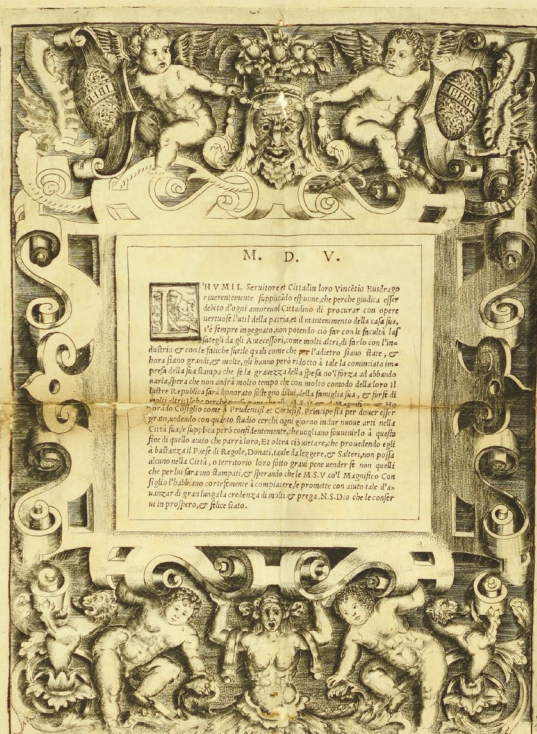 LIBERTAS
M. D. V.
L'HVMIL Seruitore et Cittadin loro Vincētio Busdrago
riuerentemente supplicādo espuone, che perche giudica esser
debito d'ogni amoreuol Cittadino di procurar con opere
vertuose l'util della patria, et il mantenimento della casa sua,
s'è sempre ingegnato, non potendo ciò far con le facultà las
sategli da gli Antecessori, come molti altri, di farlo con l'in-
dustria & con le fatiche sue: le quali come che per l'adietro siano state, &
hora siano grandi, & molte, gli hanno però ridotto à tale la cominciata im-
presa della sua stampa che se la grauezza della spesa no'l sforza ad abbando
narla, spera che non andrà molto tempo che con molto comodo della loro Il
lustre Republica sarà honorato sostegno di lui, della famiglia sua, & forse di
molti altri
norādo Cōsiglio come à Prudentiss. et Cortesiss. Principe sia per douer esser
grato, uedendo con quanto studio cerchi ogni giorno indur nuoue arti nella
Città sua, le supplica però confidentemente, che uogliano souuenirlo à questo
fine di quello aiuto che parrà loro, Et oltra ciò uietare, che prouedendo egli
à bastanza il Paese di Regole, Donati, taule da leggere, & Salteri, non possa
alcuno nella Città, o territorio loro sotto graui pene uender se non quelli
che per lui saranno stampati, & sperando che le M. S. V. co'l Magnifico Con
siglio l'habbiano cortesemente à compiacere, le promette con aiuto tale d'a-
uanzar di gran lunga la credenza di molti, & prega .N.S.Dio che le conser
ui in prospero, & felice stato.